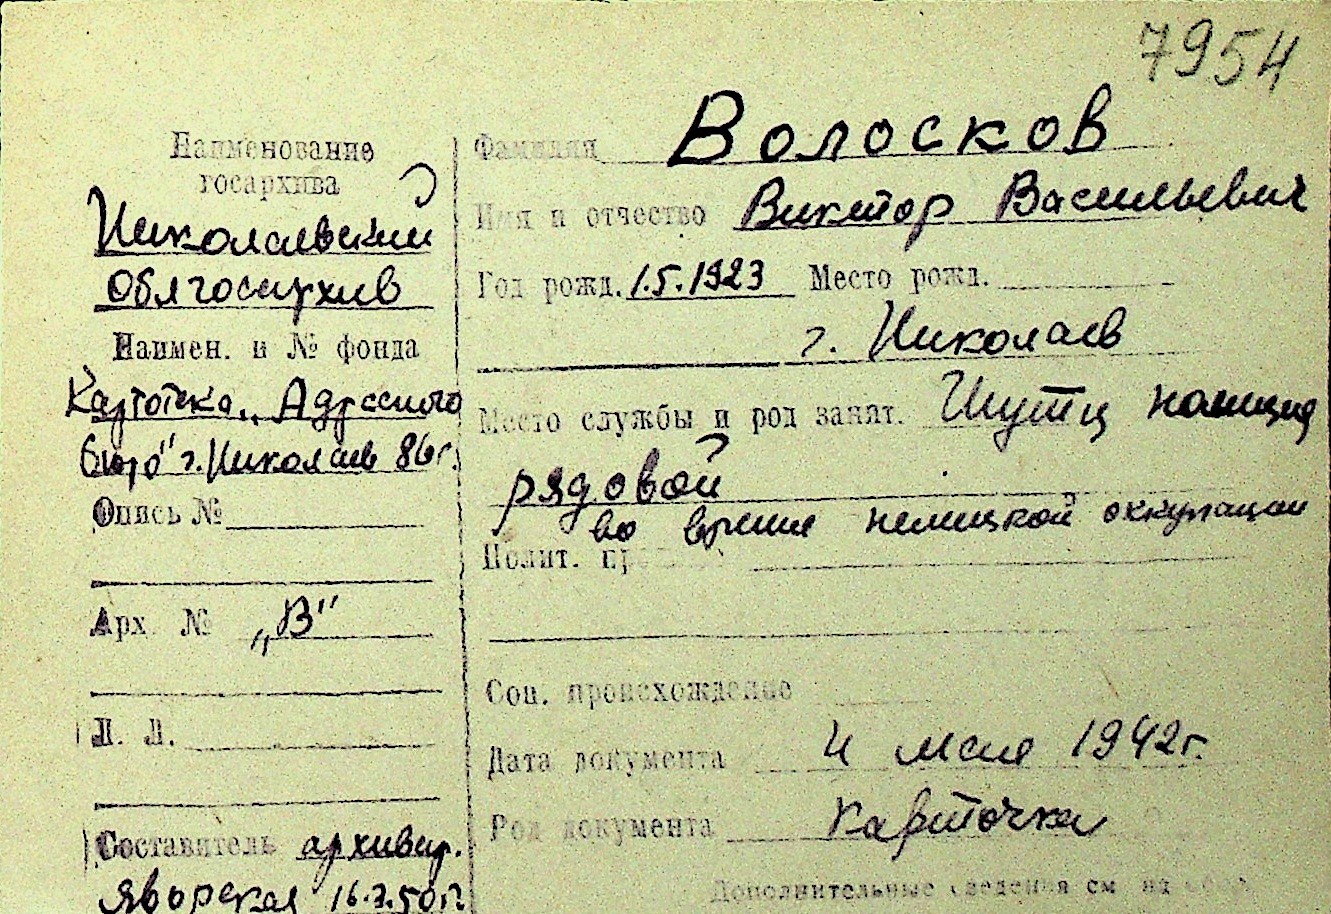 7954
Наименование
госархива
Николаевский
Облгосархив
Наимен. и № фонда
Картотека „Адресного
бюро" г. Николаев 86г.
Опись №
Арх. № „В"
Л. Л.
Составитель архивар.
Яворская 16.3.50г.
Фамилия Волосков
Имя и отчество Виктор Васильевич
Год рожд. 1.5.1923 Место рожд.
г. Николаев
Место службы и род занят. Шутц полиция
рядовой
во время немецкой оккупации
Полит.
Соц. происхождение
Дата документа 4 мая 1942г.
Род документа карточка
Дополнительные сведения см. на